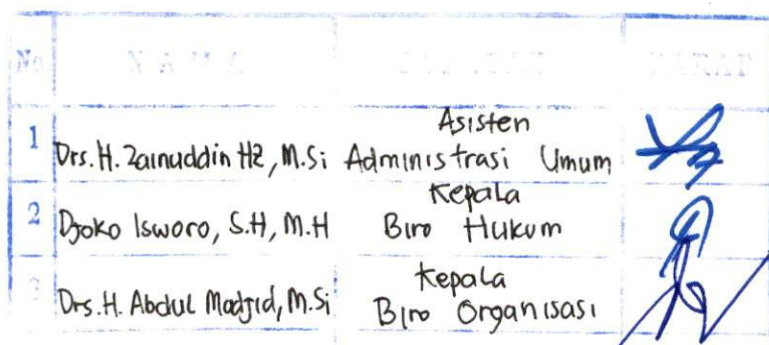 No NAMA JABATAN PARAF
1 Drs. H. Zainuddin HZ, M.Si Asisten
Administrasi Umum
2 Djoko Isworo, S.H, M.H Kepala
Biro Hukum
3 Drs. H. Abdul Madjid, M.Si Kepala
Biro Organisasi